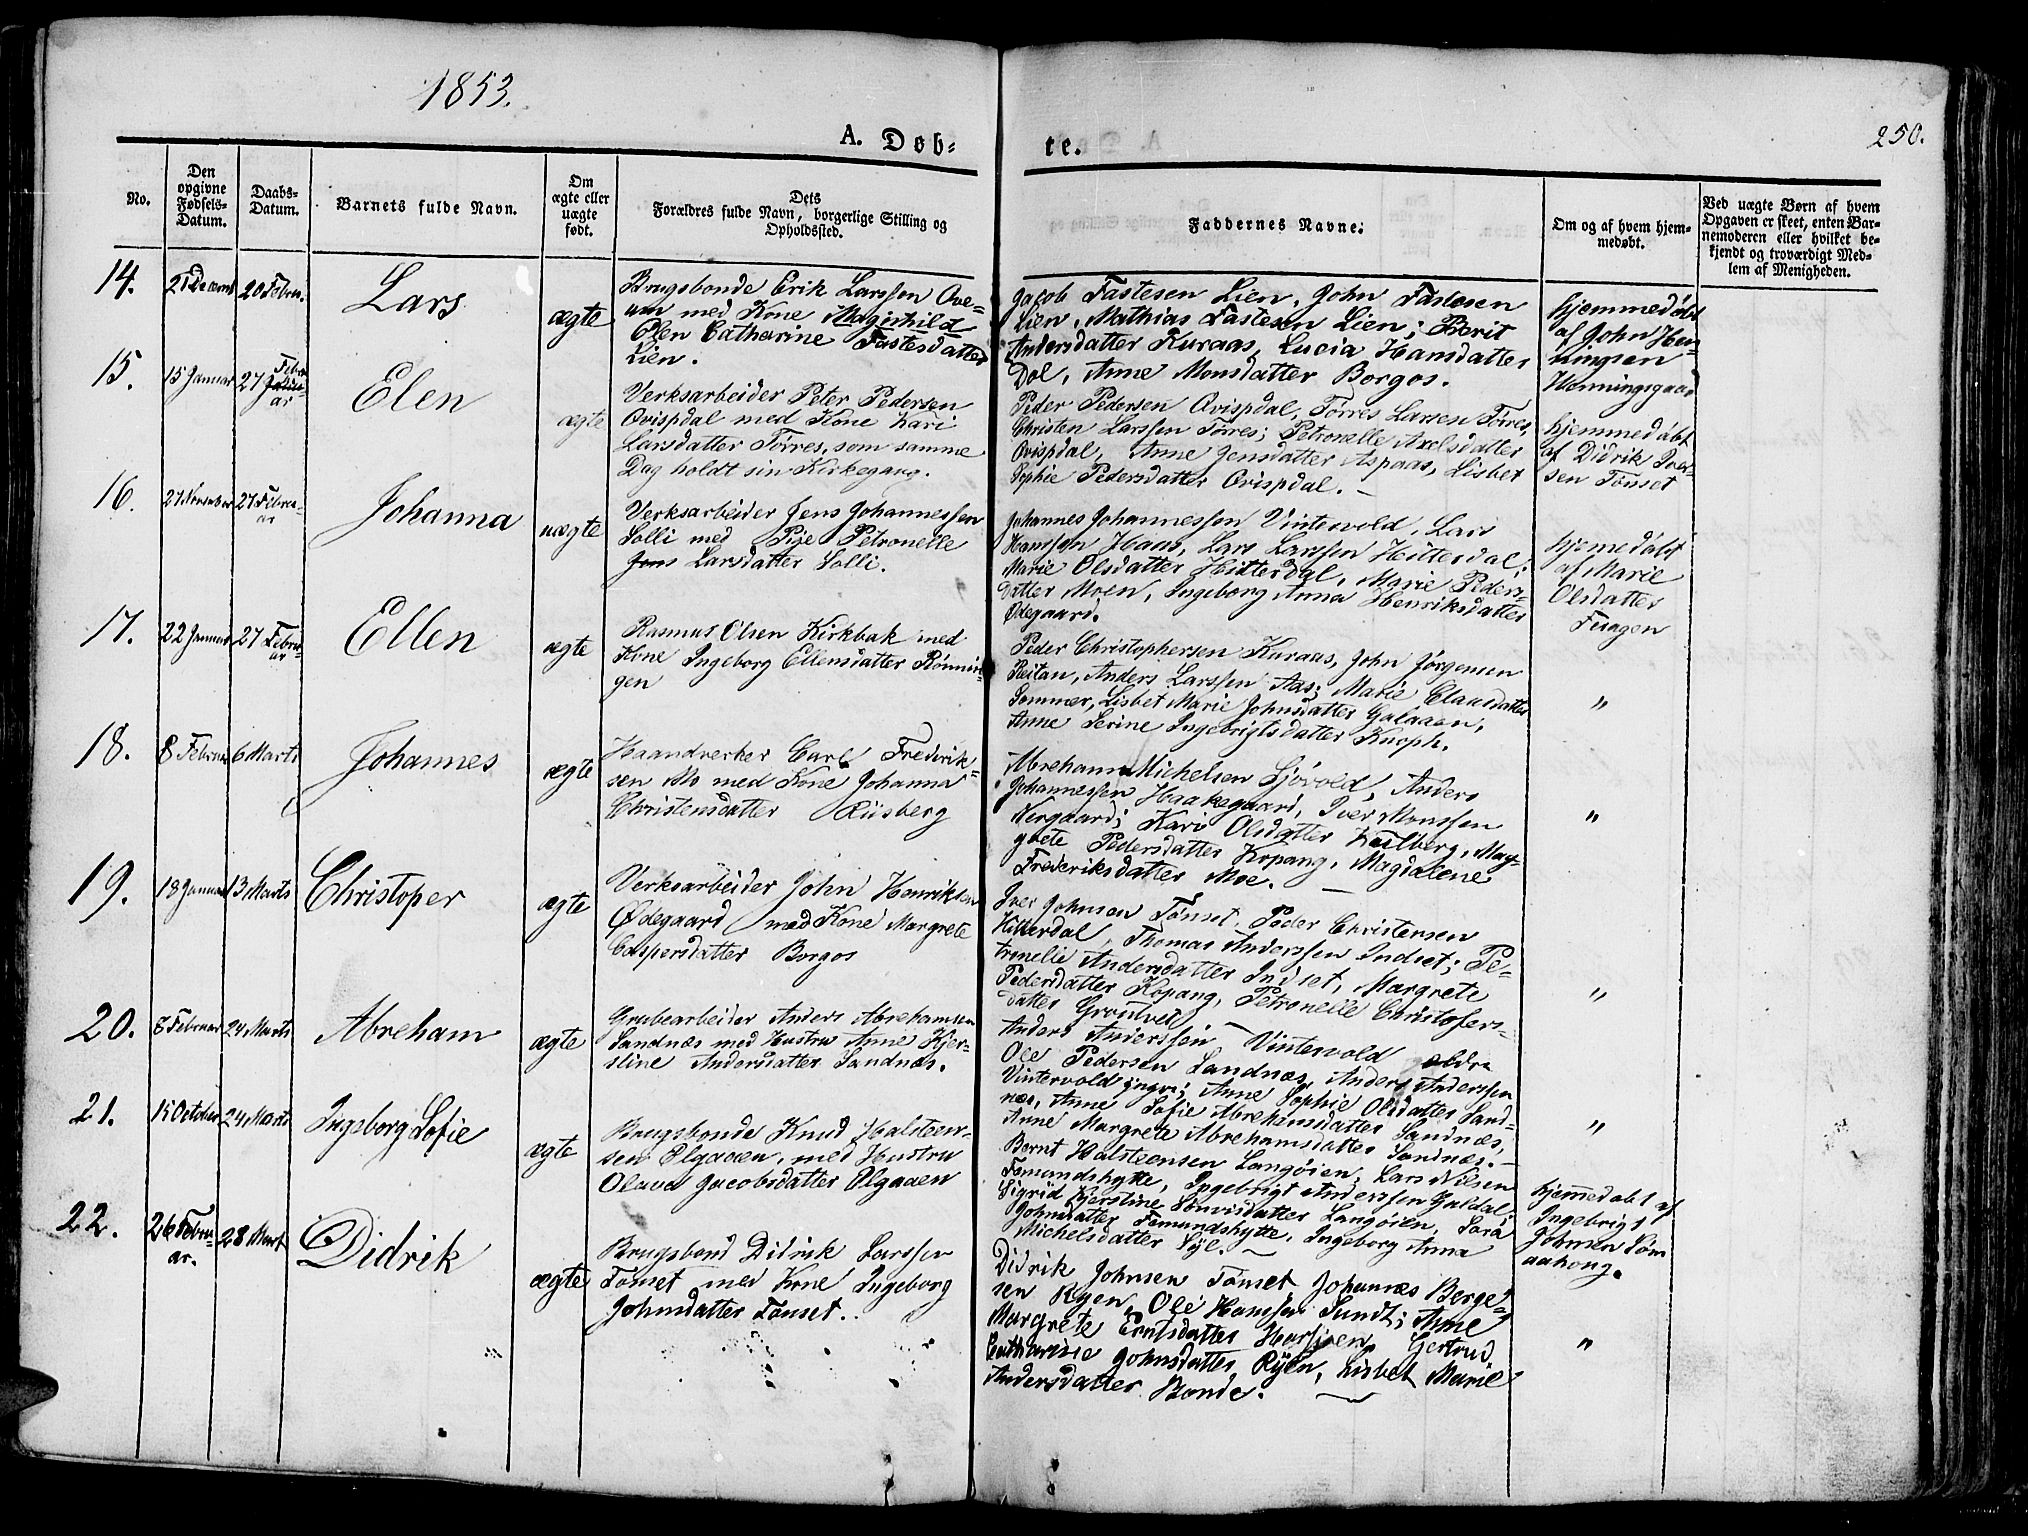 1853.
250.
A. Døb-
te.
No.
Den
opgivne
Fødsels-
Datum.
Daabs-
Datum.
Barnets fulde Navn.
Om
ægte eller
uægte
født.
Dets
Forældres fulde Navn, borgerlige Stilling og
Opholdssted.
Faddernes Navne.
Om og af hvem hjem-
medøbt.
Ved uægte Børn af hvem
Opgaven er skeet, enten Bar-
nemoderen eller hvilket be-
kjendt og troværdigt Med-
lem af Menigheden.
14.
20 Febru.
Lars
ægte
Brugsbonde Erik Larssen Ove-
um med Kone Magnhild
Elen Catharine Fastesdatter
Lien.
Jacob Fastesen Lien, John Fastesen
Lien, Mathias Fastesen Lien; Berit
Andersdatter Kuraas, Lucia Hansdatter
Dal, Anne Monsdatter Borgos.
hjemmedöbt
af John Hen-
ningsen
Henningsgaard
15.
15 Januar
27 Febru
ar
Elen
ægte
Verksarbeider Peter Pedersen
Qvispdal med Kone Kari
Larsdatter Tørres, som samme
Dag holdt sin Kirkegang.
Peder Pedersen Qvispdal, Tørres Larsen Tørres,
Christen Larssen Tørres; Petronelle Axelsdatter
Qvispdal, Anne Jensdatter Aspaas, Lisbet
Sophie Pedersdatter Qvispdal.
hjemmedöbt
af Didrik Iver-
sen Tønset
16.
27 November
27 Febru-
ar
Johanna
uægte
Verksarbeider Jens Johannessen
Solli med Pige Petronelle
Jens Larsdatter Solli.
Johannes Johannessen Vintervold, Lars
Hanssen Haas, Lars Larssen Hitterdal;
Marie Olsdatter Hitterdal, Marie Peders-
datter Moen, Ingeborg Anna Henriksdatter
Ødegaard.
hjemedöbt
af Marie
Olsdatter
Feragen
17.
22 Januar
27 Febru
ar
Ellen
ægte
Rasmus Olsen Kirkbak med
Kone Ingeborg Ellensdatter Rønnin-
gen
Peder Christophersen Kuraas, John Jørgensen
Reitan, Anders Larssen Aas; Marie Claasdatter
Sommer, Lisbet Marie Johnsdatter Galaaen,
Anne Serine Ingebrigtsdatter Knoph.
"
18.
8 Februar
6 Marts
Johannes
ægte
Haandverker Carl Frederik-
sen Mo med Kone Johanna
Christensdatter Riisberg
Abreham Michelsen Sjövold, Anders
Johannessen Haakegaard, Iver Monssen
Nergaard; Kari Olsdatter Kulberg, Mar-
grete Pedersdatter Kopang, Magdalene
Frederiksdatter Moe.
"
19.
18 Januar
13 Marts
Christoper
ægte
Verksarbeider John Henriksen
Ødegaard med Kone Margrete
Caspersdatter Borgos
Iver Johnsen Tønset, Peder Christensen
Hitterdal, Thomas Anderssen Indset; Pe-
tronelle Andersdatter Indset, Margrete
Pedersdatter Kopang, Petronelle Christofers-
datter Grøntvedt
"
20.
8 Februar
24 Marts
Abreham
ægte
Grubearbeider Anders Abrehamsen
Sandnæs med Hustru Anne Kjer-
stine Andersdatter Sandnæs.
Anders Anderssen Vintervold ældre
Ole Pedersen Sandnæs, Anders Anderssen
Vintervold yngre; Anne Sophie Olsdatter Sand-
næs, Anne Sofie Abrehamsdatter Sandnæs,
Anne Margrete Abrehamsdatter Sandnæs.
"
21.
15 October
24 Marts
Ingeborg Sofie
ægte
Brugsbonde Knud Halsteen-
sen Elgaaen, med Hustru
Olava Jacobsdatter Elgaaen
Bernt Halsteensen Langøien, Lars Nilsen
Fæmundshytte, Ingebrigt Anderssen Galdal;
Sigrid Kjerstine Langøien, Sara
Johnsdatter Fæmundshytte, Ingeborg Anna
Michelsdatter
hjemmedöbt af
Ingebrigt
Johnsen
22.
26 Febru-
ar.
28 Mart
Didrik
ægte
Brugsbond Didrik Larssen
Tønset med Kone Ingeborg
Johnsdatter Tønset.
Didrik Johnsen Tønset, Johannes Berget-
sen Ryen, Ole Hanssen Sundt; Anne
Margrete Harsjøen, Gertrud
Catharine Johnsdatter Ryen, Lisbet Marie
Andersdatter Bonde.
"